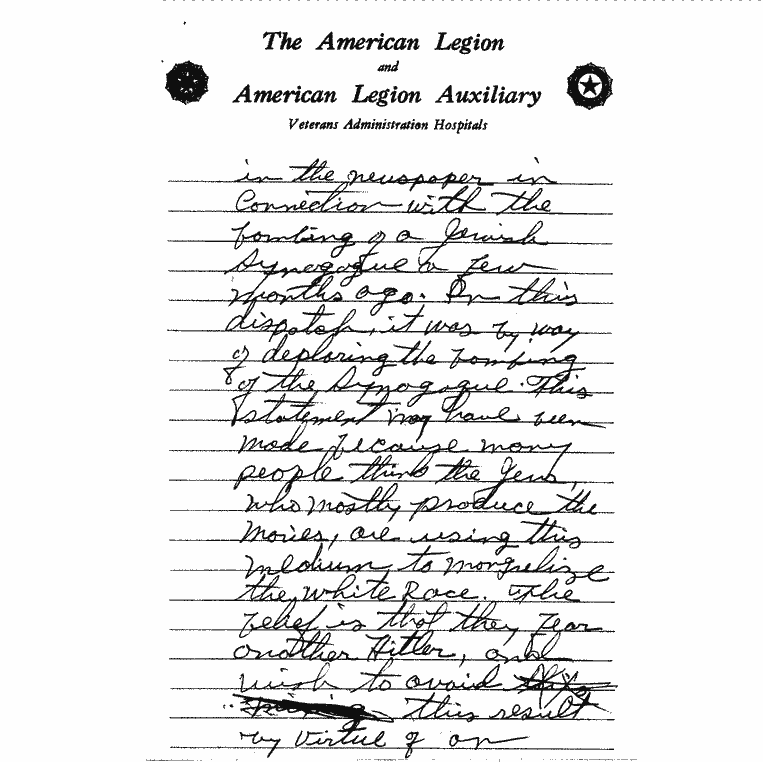 The American Legion
and
American Legion Auxiliary
Veterans Administration Hospitals
in the newspaper in
Connection with the
bombing of a Jewish
Synagogue a few
months ago. In this
dispatch, it was by way
of deploring the bombing
of the Synagogue. This
statement may have been
made because many
people think the Jews,
who mostly produce the
movies, are using this
medium to mongrelize
the White Race. The
belief is that they fear
another Hitler, and
wish to avoid
this result
by virtue of an